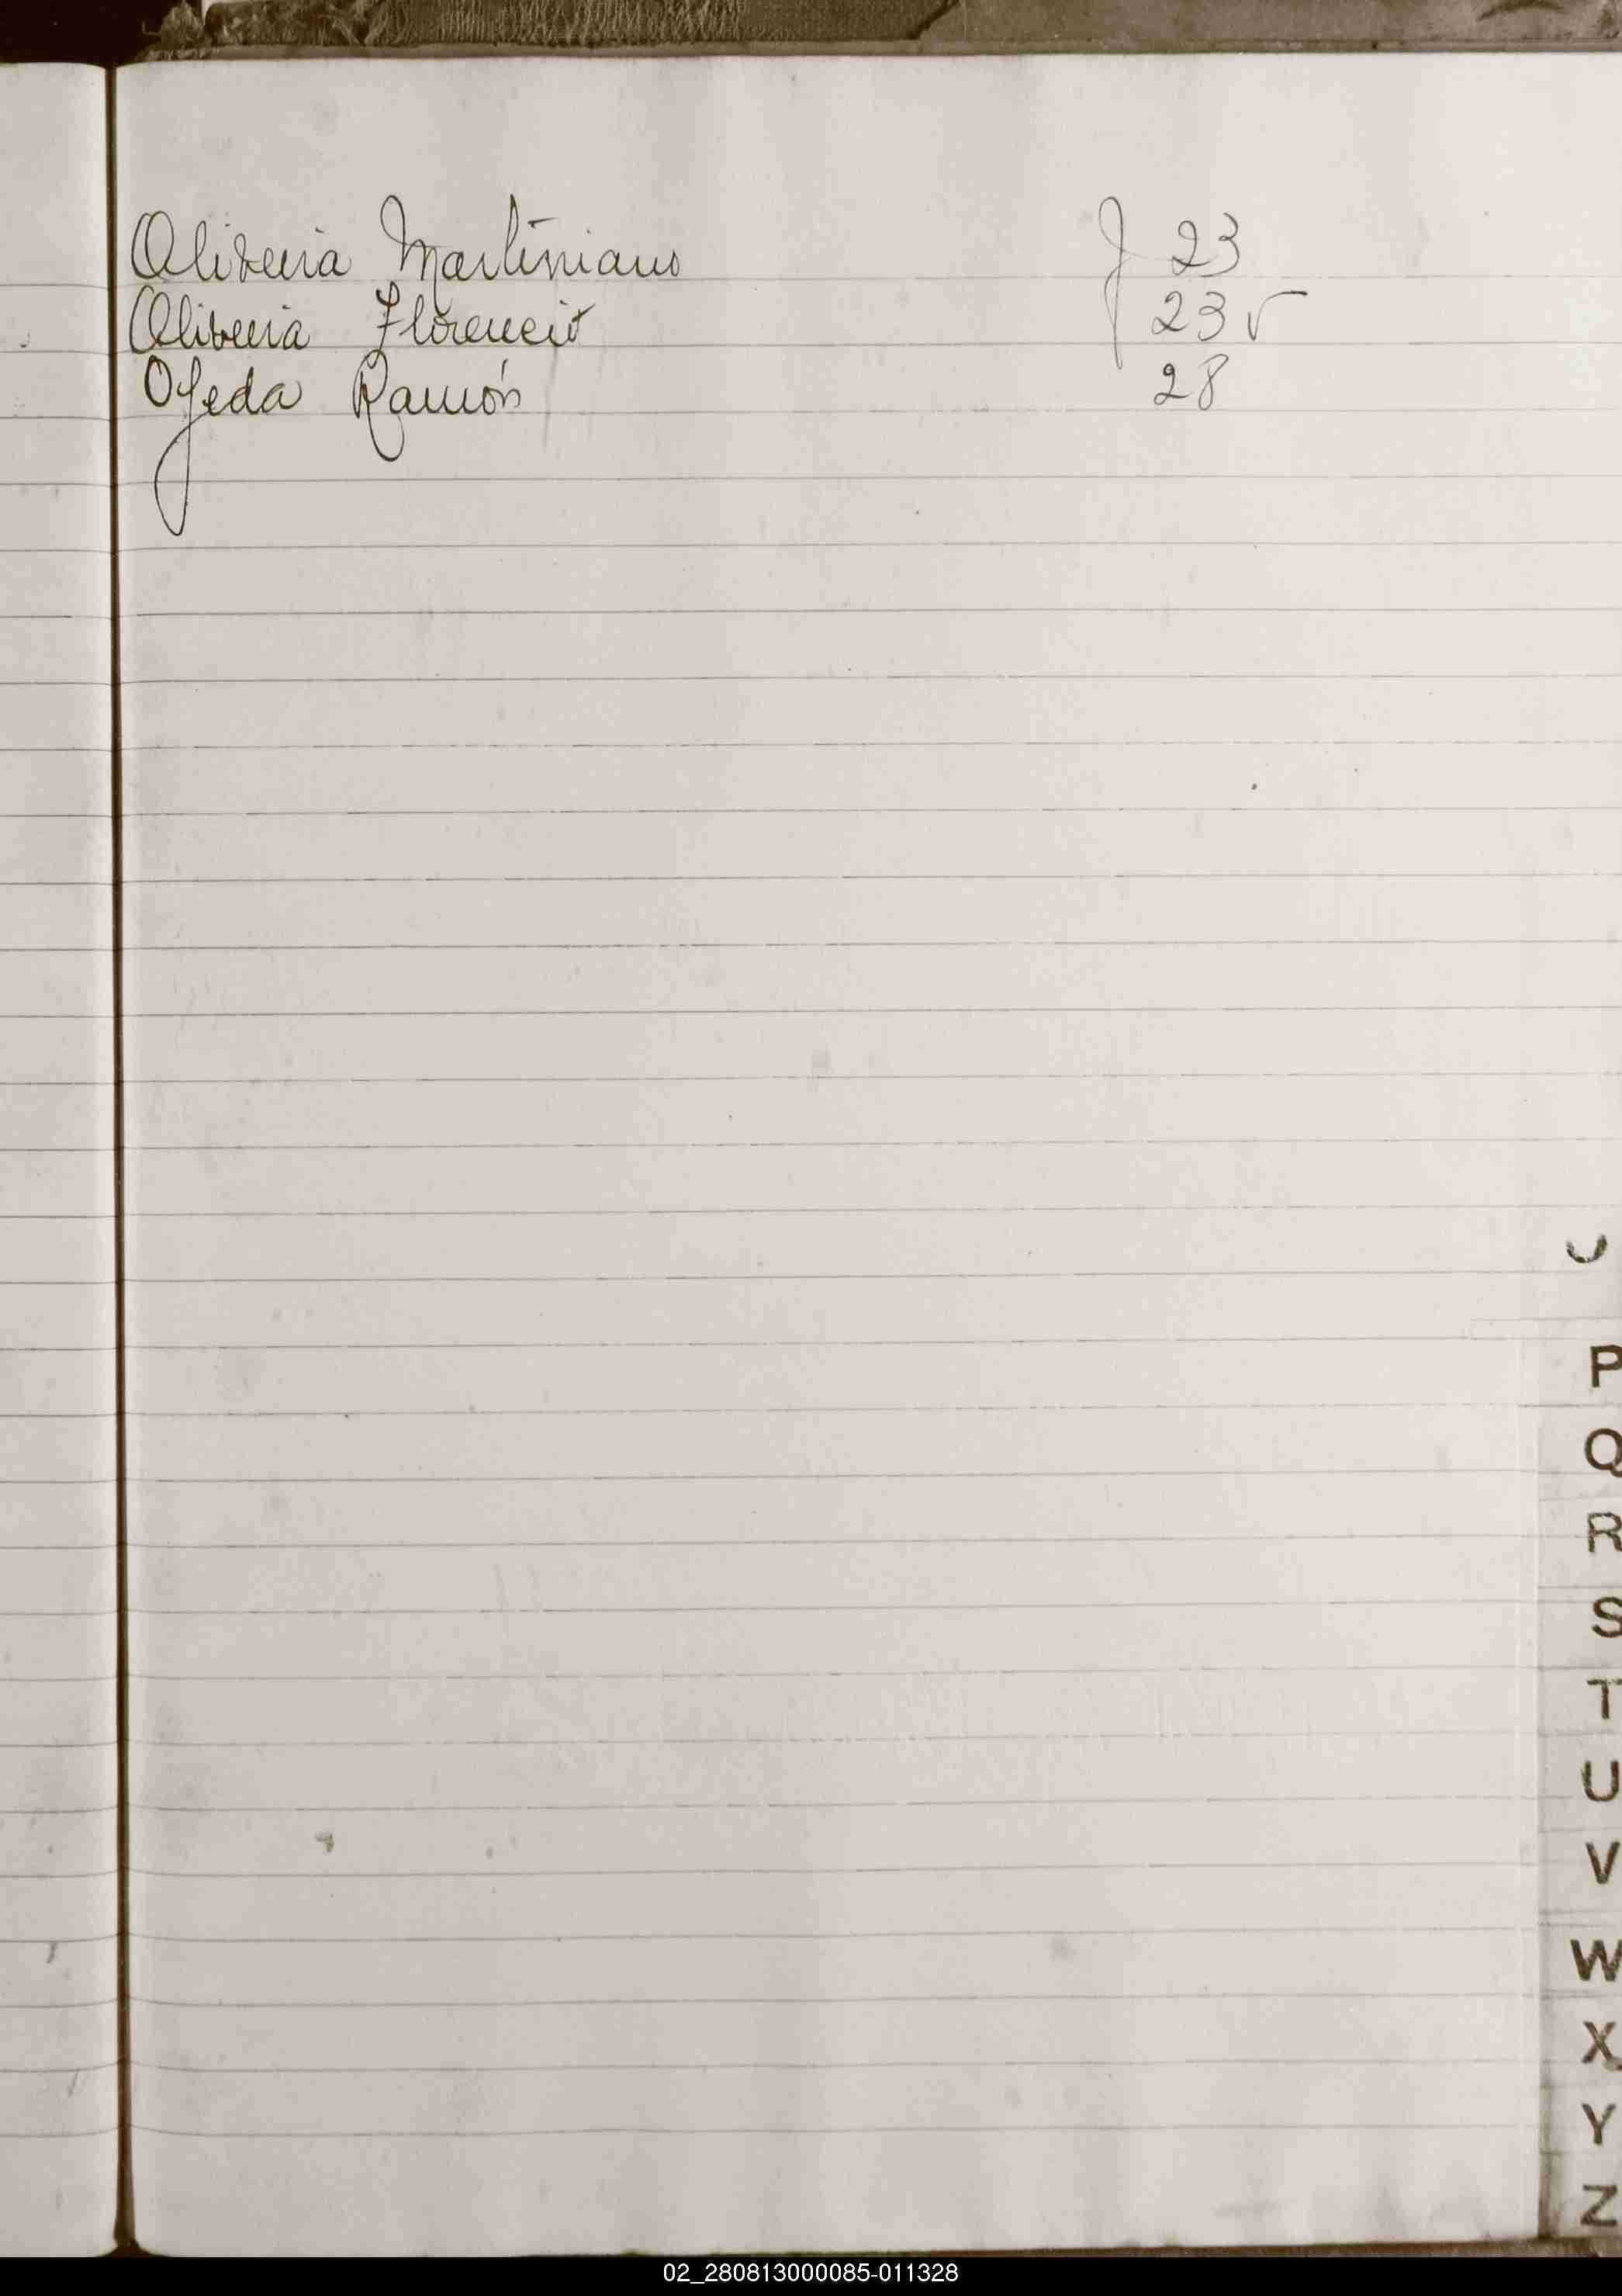 Oliveira Martiniano f 23
Oliveira Florencio 23 v
Ojeda Ramón 28
P
Q
R
S
T
U
V
W
X
Y
Z
02_280813000085-011328